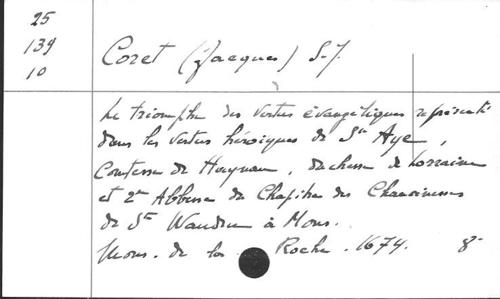 25
139
10
Coret (Jacques) S.J.
Le triomphe des vertus évangéliques représenté
dans les vertus héroïques de Ste Aye,
Comtesse de Haynau, duchesse de Lorraine
et 2me Abbesse du Chapitre des Chanoinesses
de Ste Waudru à Mons.
Mons. de la Roche. 1674. 8°